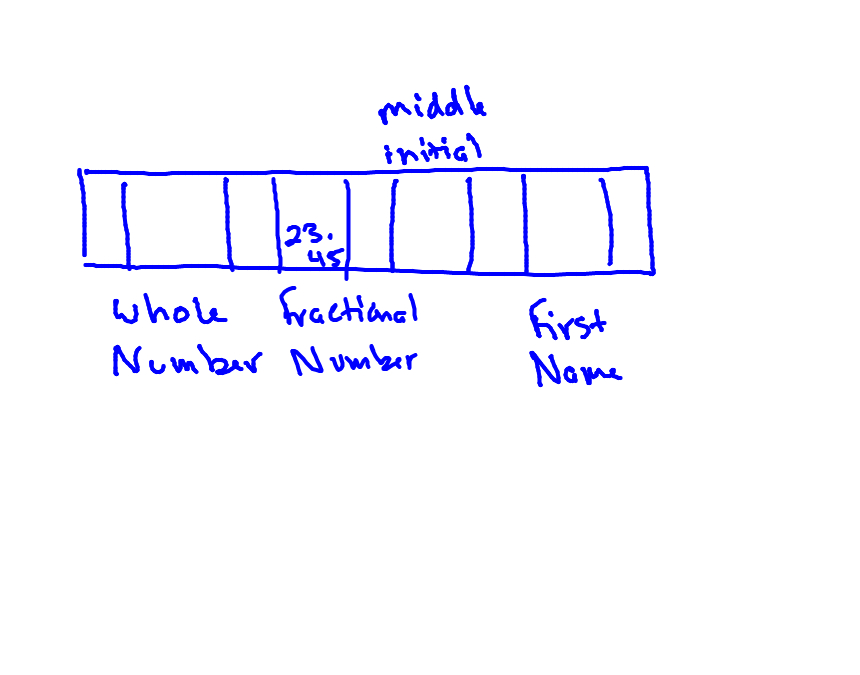 middle
initial
23.
45
Whole
Number
Fractional
Number
First
Name